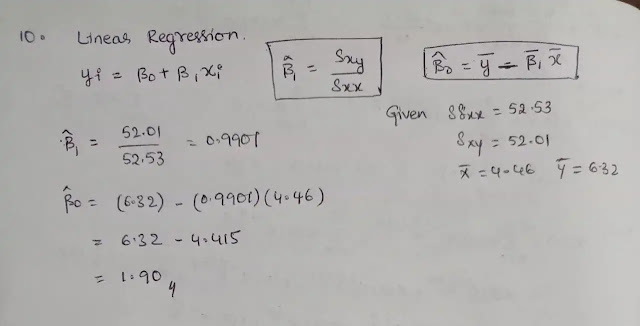 10. Linear Regression.
yi = β0 + β1xi
β̂1 = Sxy / Sxx
β̂0 = ȳ - β̄1 x̄
Given SSxx = 52.53
Sxy = 52.01
x̄ = 4.46 ȳ = 6.32
β̂1 = 52.01 / 52.53 = 0.9901
β̂0 = (6.32) - (0.9901)(4.46)
= 6.32 - 4.415
= 1.90